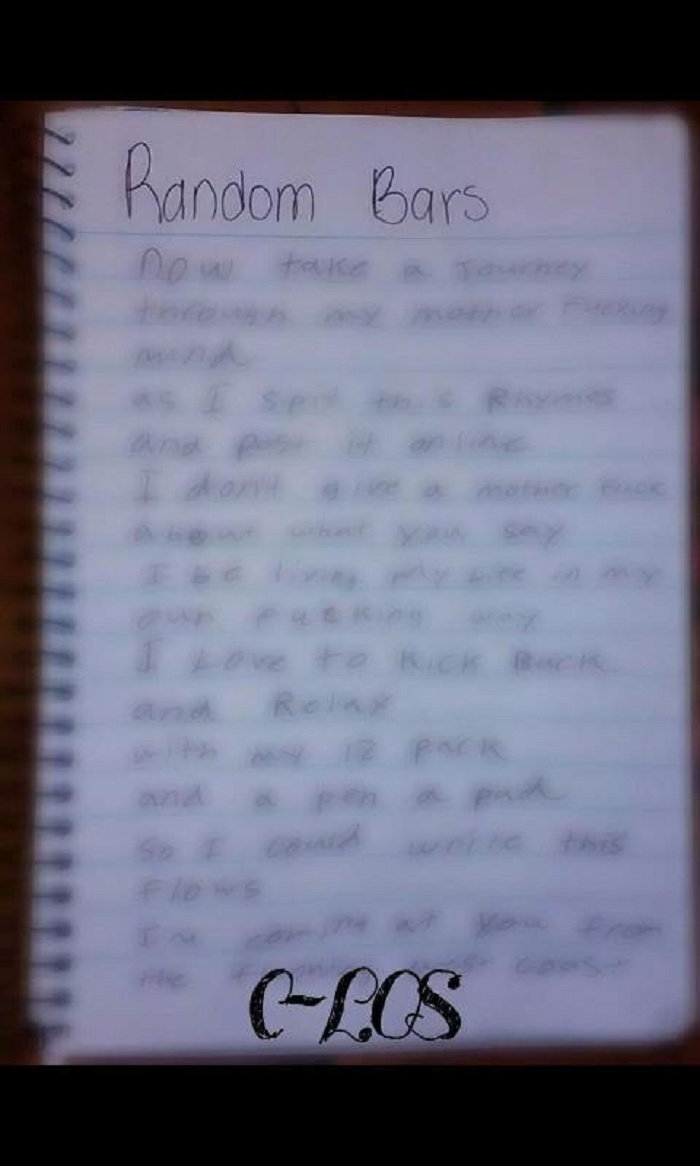 Random Bars
now take a Journey
through my mother Fucking
mind
as I spit this Rhymes
and post it online
I don't give a mother Fuck
about what you say
I be living my Life in my
own Fucking way
I Love to Kick Back
and Relax
with my 12 pack
and a pen a pad
so I could write this
Flows
coming at you From
the west coast
C-LOS